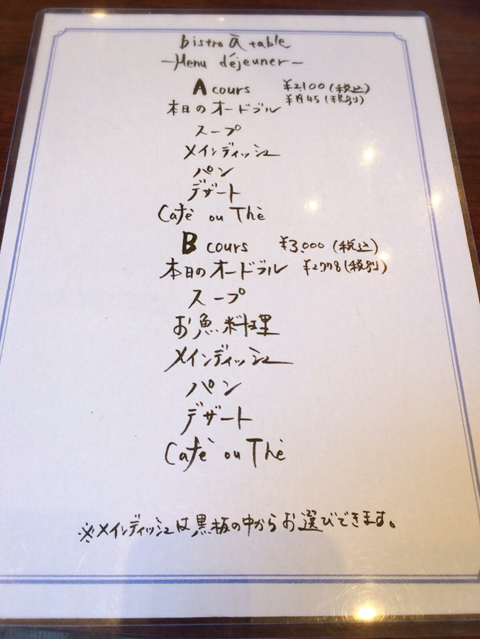 bistro à table
-Menu déjeuner-
A cours ¥2100(税込)
本日のオードブル ¥1945(税別)
スープ
メインディッシュ
パン
デザート
Café ou Thè
B cours ¥3,000(税込)
本日のオードブル ¥2778(税別)
スープ
お魚料理
メインディッシュ
パン
デザート
Café ou Thè
※メインディッシュは黒板の中からお選びできます。